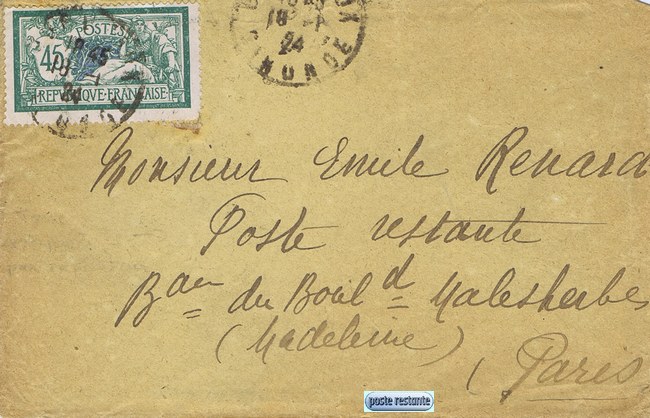 POSTES
45
REPUBLIQUE·FRANÇAISE
18 45
18
24
18
24
Monsieur Emile Renard
Poste restante
Bau du Boul d Malesherbes
(Madeleine)
(Paris
poste restante